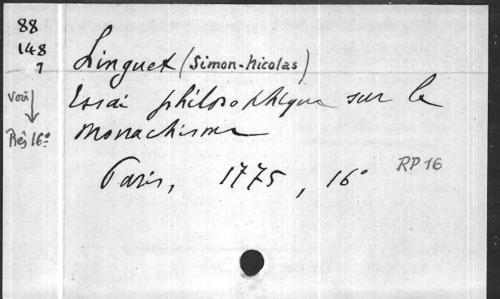 88
148
7
Linguet (Simon-Nicolas)
Voir
Essai philosophique sur le
Monachisme
Rés 16°
Paris, 1775, 16°
RP 16